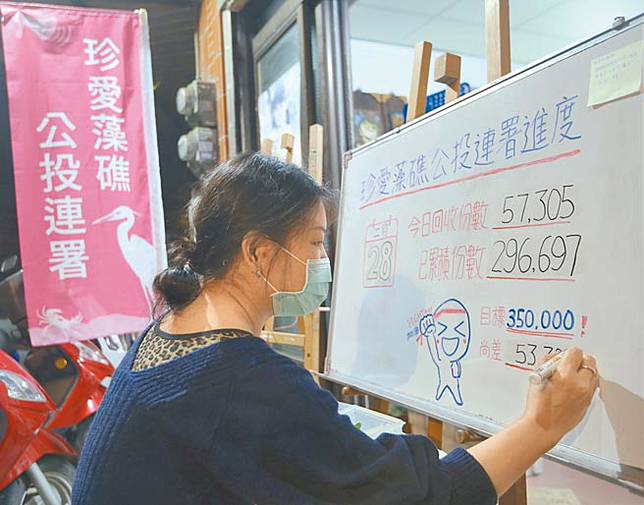 珍愛藻礁
公投連署
珍愛藻礁公投連署進度
28
今日回收份數 57,305
已累積份數 296,697
目標 350,000 !
尚差